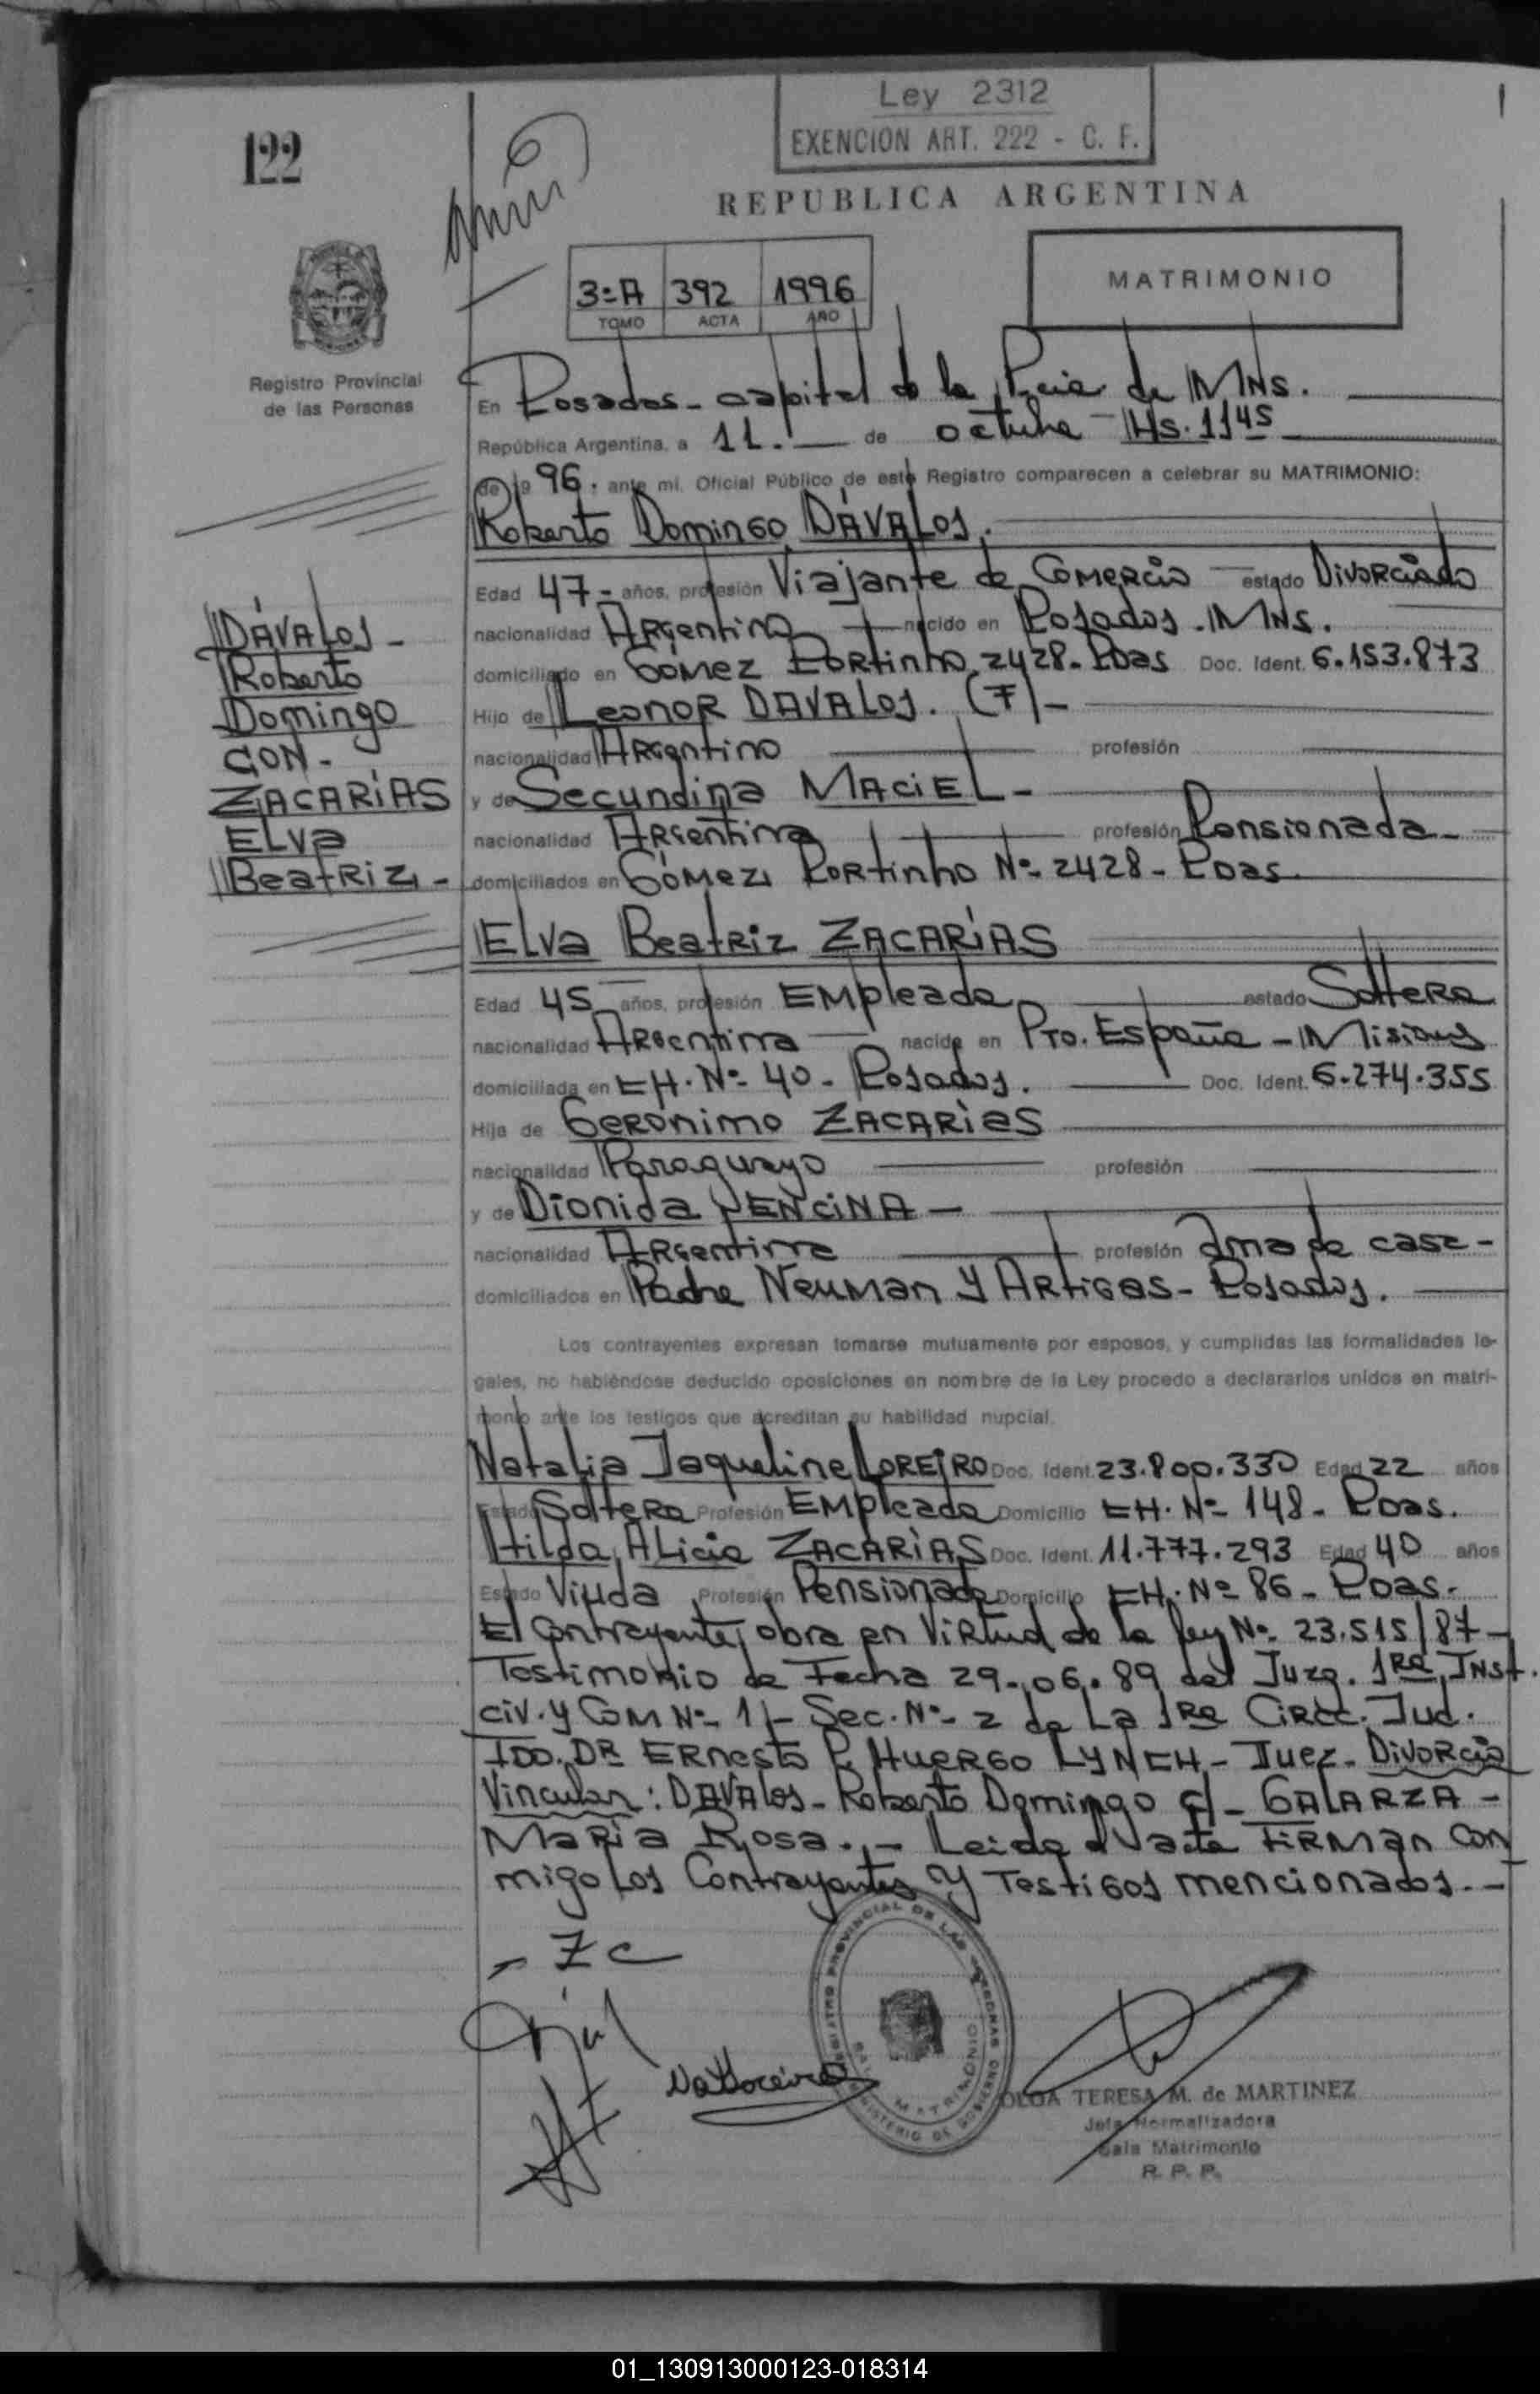 Ley 2312
EXENCION ART. 222 - C. F.
122
REPUBLICA ARGENTINA
3=A 392 1996
TOMO ACTA AÑO
MATRIMONIO
Registro Provincial
de las Personas
En Posadas - capital de la Pcia de Mns.
República Argentina, a 11. de octubre Hs. 1145
de 19 96. ante mi, Oficial Público de este Registro comparecen a celebrar su MATRIMONIO:
Roberto Domingo DÁVALOS.
Edad 47 - años, profesión Viajante de Comercio estado Divorciado
nacionalidad Argentino nacido en Posadas. Mns.
domiciliado en Gómez Portinho 2428 - Pdas Doc. Ident. 6.153.873
Hijo de Leonor DAVALOS. (F) -
nacionalidad Argentino profesión
y de Secundina MACIEL -
nacionalidad Argentina profesión Pensionada -
domiciliados en Gómez Portinho Nº 2428 - Pdas.
DÁVALOS -
Roberto
Domingo
CON -
ZACARÍAS
ELVA
Beatriz -
ELVA Beatriz ZACARÍAS
Edad 45 años, profesión Empleada estado Soltera
nacionalidad Argentina nacida en Pto. España - Misiones
domiciliada en CH. Nº 40 - Posadas. Doc. Ident. 6.274.355
Hija de Geronimo ZACARÍAS
nacionalidad Paraguayo profesión
y de Dionida ENCINA -
nacionalidad Argentina profesión Ama de casa -
domiciliados en Padre Neuman y Artigas - Posadas.
Los contrayentes expresan tomarse mutuamente por esposos, y cumplidas las formalidades le-
gales, no habiéndose deducido oposiciones en nombre de la Ley procedo a declararlos unidos en matri-
monio ante los testigos que acreditan su habilidad nupcial.
Natalia Jaqueline LOREIRO Doc. Ident. 23.800.330 Edad 22 años
Estado Soltera Profesión Empleada Domicilio CH. Nº 148 - Pdas.
Hilda Alicia ZACARÍAS Doc. Ident. 11.777.293 Edad 40 años
Estado Viuda Profesión Pensionada Domicilio CH. Nº 86 - Pdas -
El Contrayente, obra en Virtud de la Ley Nº 23.515/87 -
Testimonio de Fecha 29-06.89 del Juzg. 1Ra Inst.
Civ. y Com Nº 1 - Sec. Nº 2 de La 1Ra Circ. Jud.
FDO. DR ERnesto P. HUERGO LYNCH - Juez - Divorcio
Vincular: DÁVALOS - Roberto Domingo c/ - GALARZA -
María Rosa. - Leida el acta FIRMAN con
migo Los Contrayentes y Testigos mencionados. -
REGISTRO PROVINCIAL DE LAS PERSONAS
MINISTERIO DE GOBIERNO
MATRIMONIO
OLGA TERESA M. de MARTINEZ
Jefa Normalizadora
Sala Matrimonio
R. P. P.
01_130913000123-018314